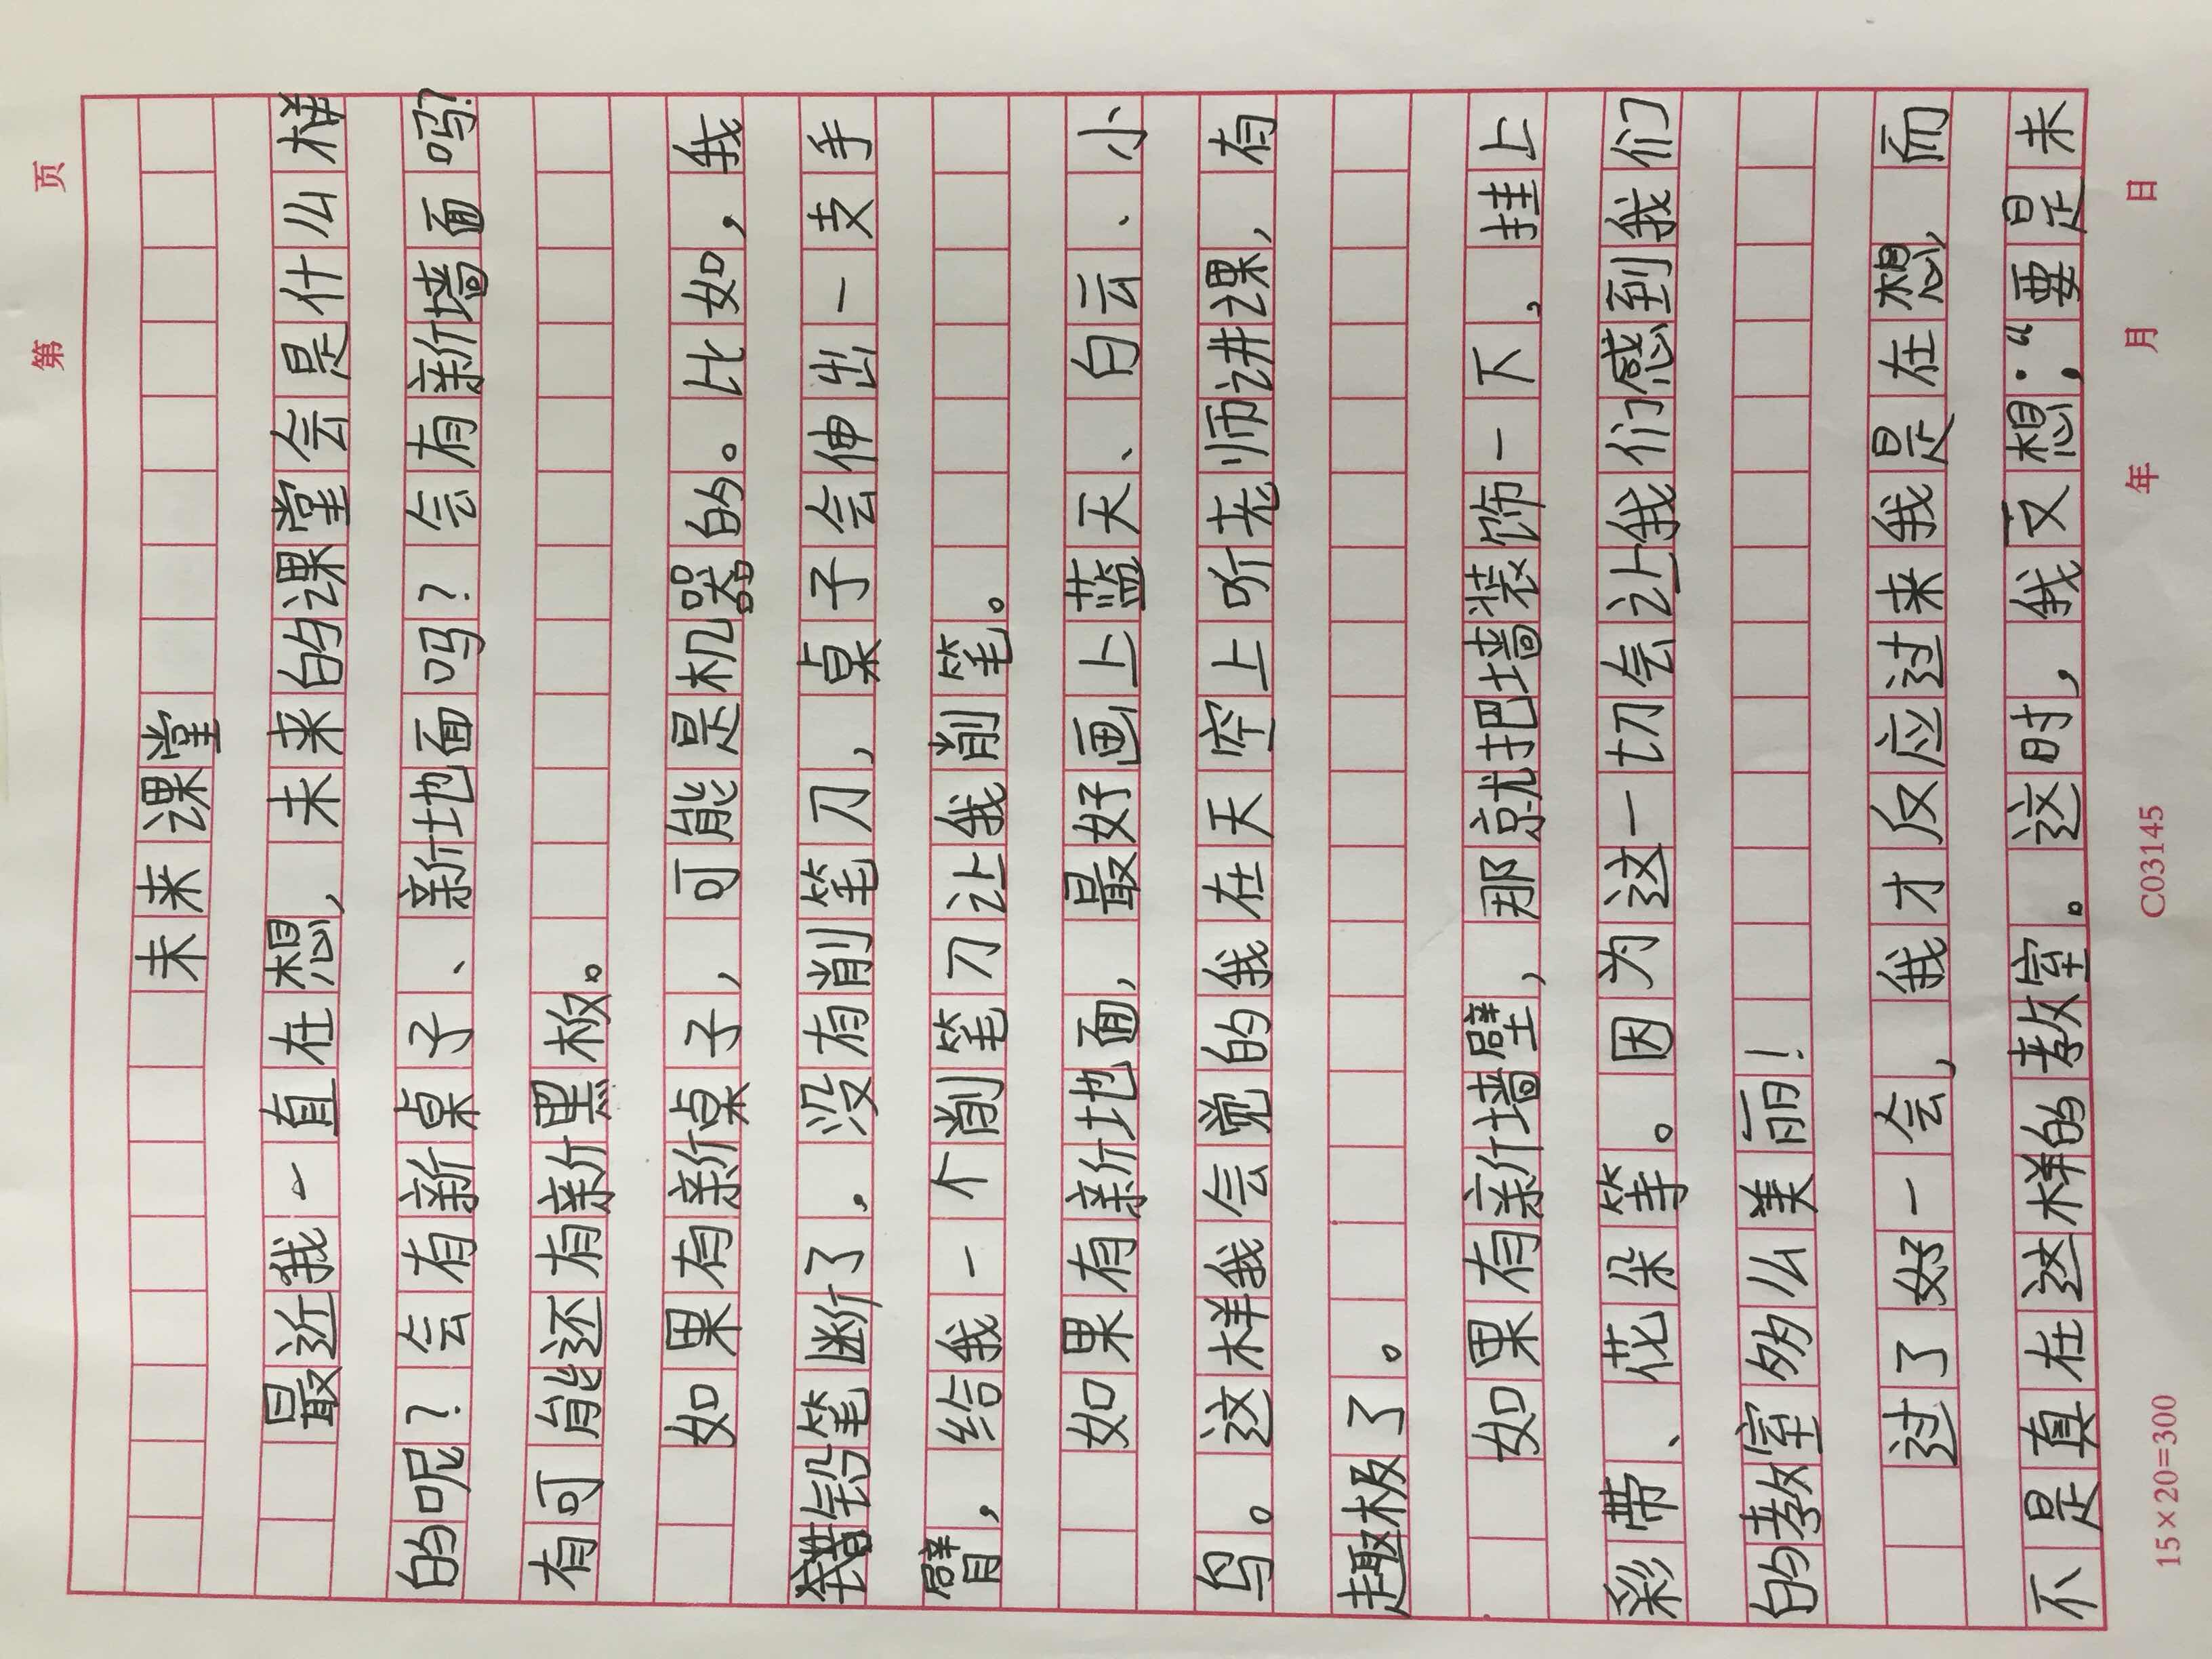 第 页
未来课堂
最近我一直在想，未来的课堂会是什么样
的呢？会有新桌子、新地面吗？会有新墙面吗？
有可能还有新黑板。
如果有新桌子，可能是机器的。比如，我
铅笔断了，没有削笔刀，桌子会伸出一支手
臂，给我一个削笔刀让我削笔。
如果有新地面，最好画上蓝天、白云、小
鸟。这样我会觉的我在天空上听老师讲课，有
趣极了。
如果有新墙壁，那就把墙装饰一下，挂上
彩带、花朵等。因为这一切会让我们感到我们
的教室多么美丽！
过了好一会，我才反应过来我是在想，而
不是真在这样的教室。这时，我又想：“要是未
15×20=300 C03145 年 月 日